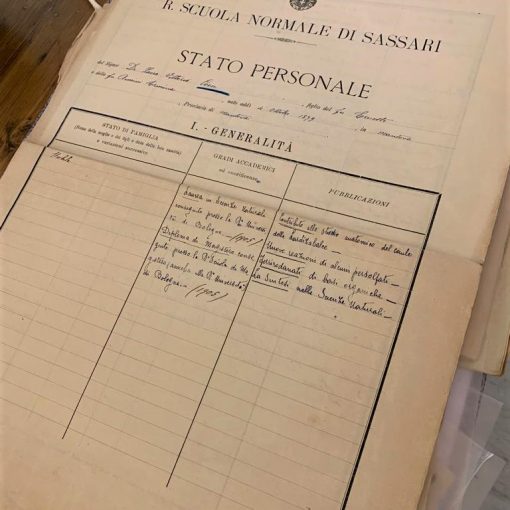 R. SCUOLA NORMALE DI SASSARI
STATO PERSONALE
del Signor D.
nato addì 4 Ottobre 1879, figlio del fu
e della fu Provincia di Mantova in Mantova
I. - GENERALITÀ
STATO DI FAMIGLIA
(Nome della moglie e dei figli e data della loro nascita)
e variazioni successive
GRADI ACCADEMICI
ed onorificenze
PUBBLICAZIONI
Nubile
Laurea in Scienze Naturali
conseguita presso la Rª Univers
tà di Bologna. (1905)
Diploma di Magistero conse
guito presso la Rª Scuola di Ma
gistero annessa alla Rª Università
di Bologna. (1905)
Contributo allo studio anatomico del caule
delle
Nuove reazioni di alcuni persolfati
di basi organiche
La Sintesi nelle Scienze Naturali